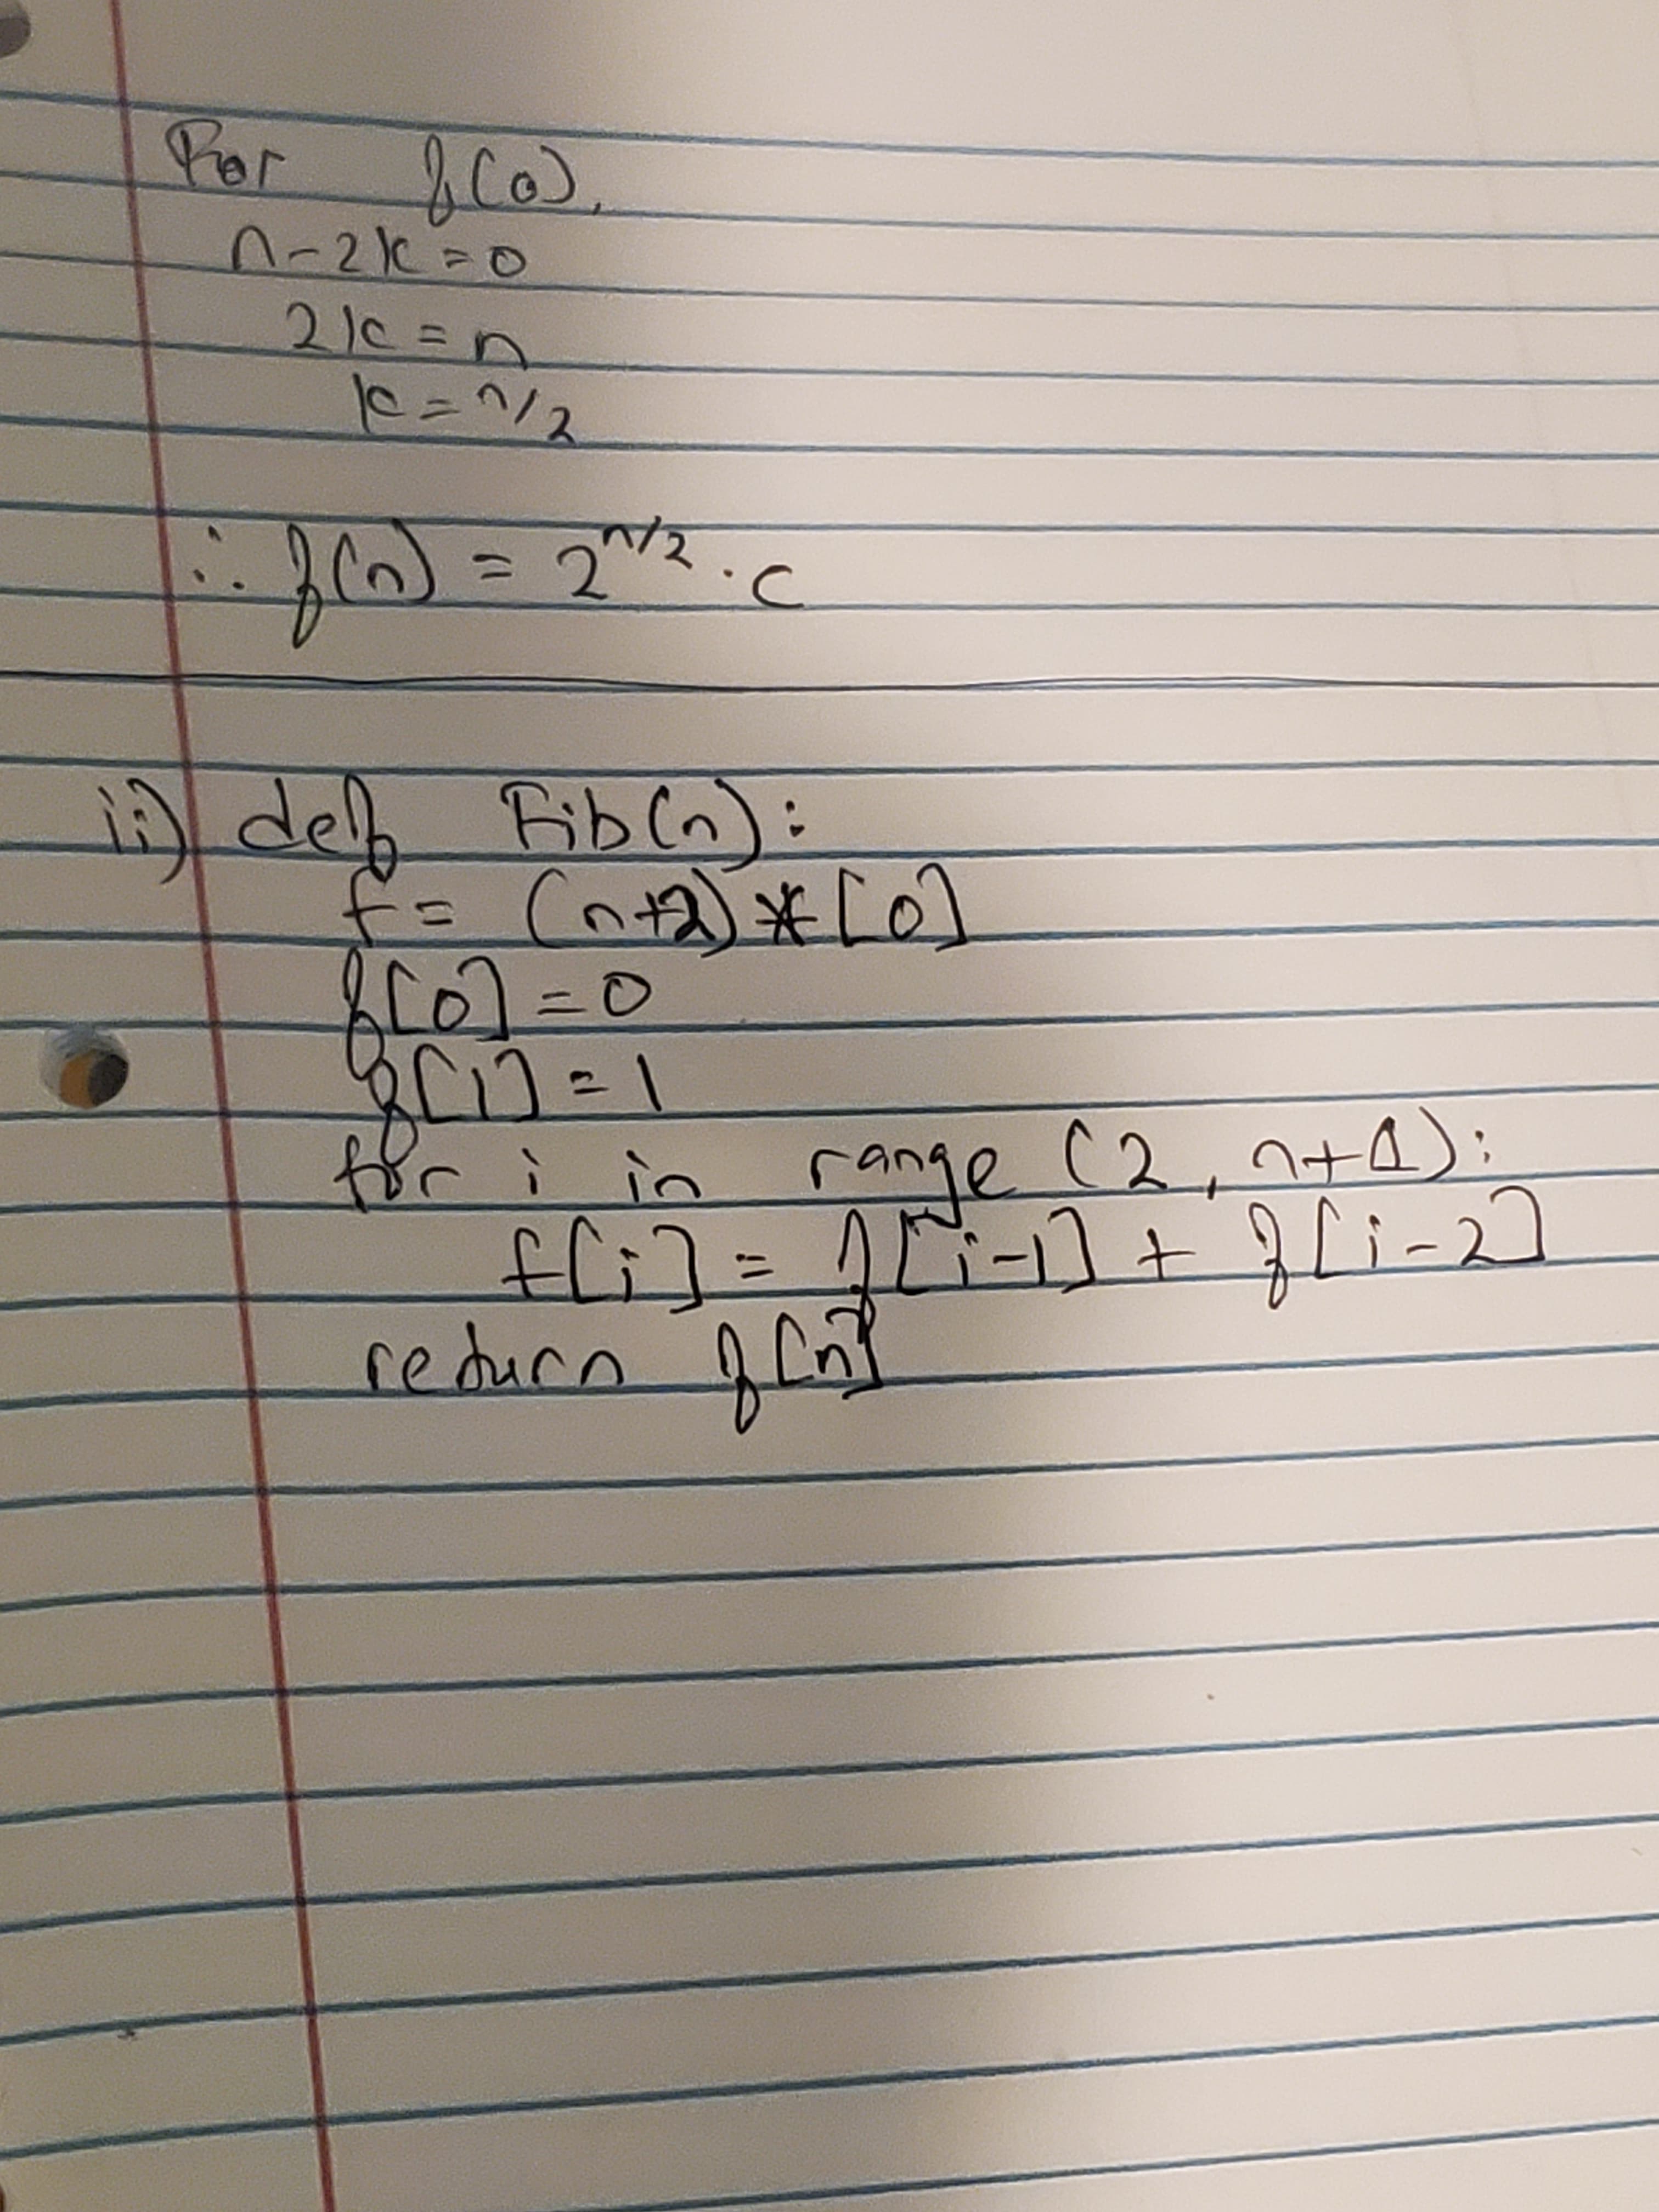 For f(0),
n-2k=0
2k=n
k=n/2
∴ f(n) = 2^n/2 · c
ii) def Fib(n):
f = (n+2)*[0]
f[0]=0
f[1]=1
for i in range (2, n+1):
f[i] = f[i-1] + f[i-2]
return f[n]